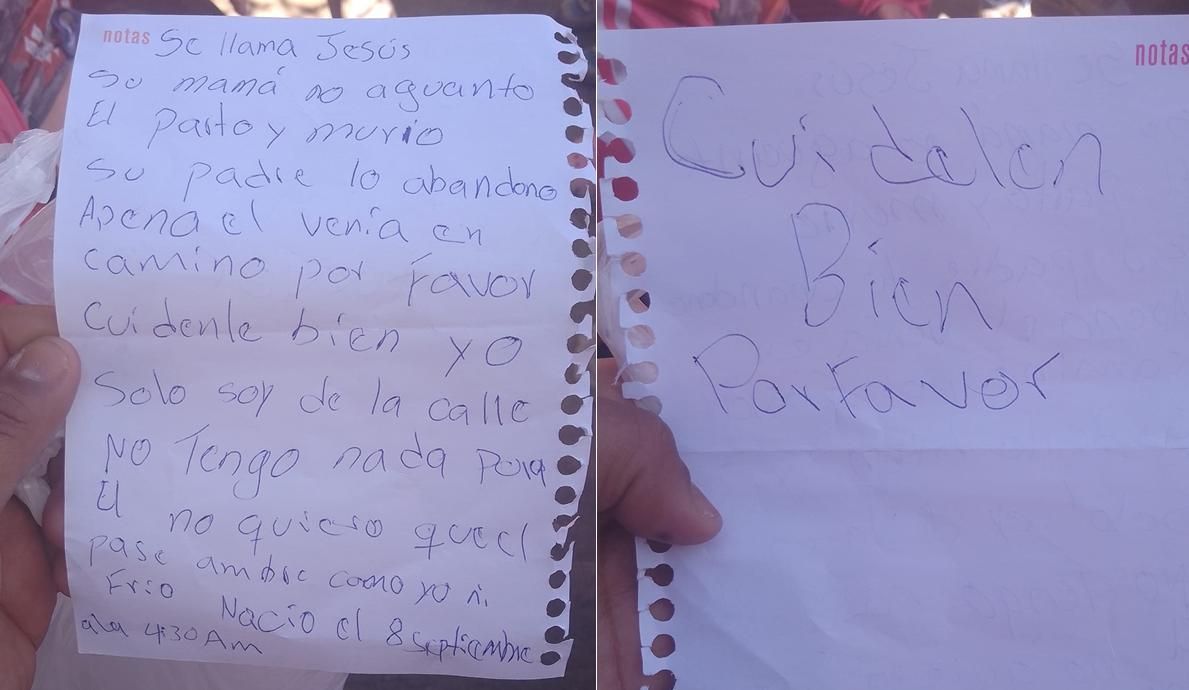 notas Se llama Jesús
su mamá no aguanto
El parto y murio
su padre lo abandono
Apena el venía en
camino por favor
Cuidenle bien yo
Solo soy de la calle
NO Tengo nada para
El no quiero que el
pase ambre como yo ni
Frio Nacio el 8 septiembre
ala 4:30 Am
notas
Cuidelen
Bien
Por Favor